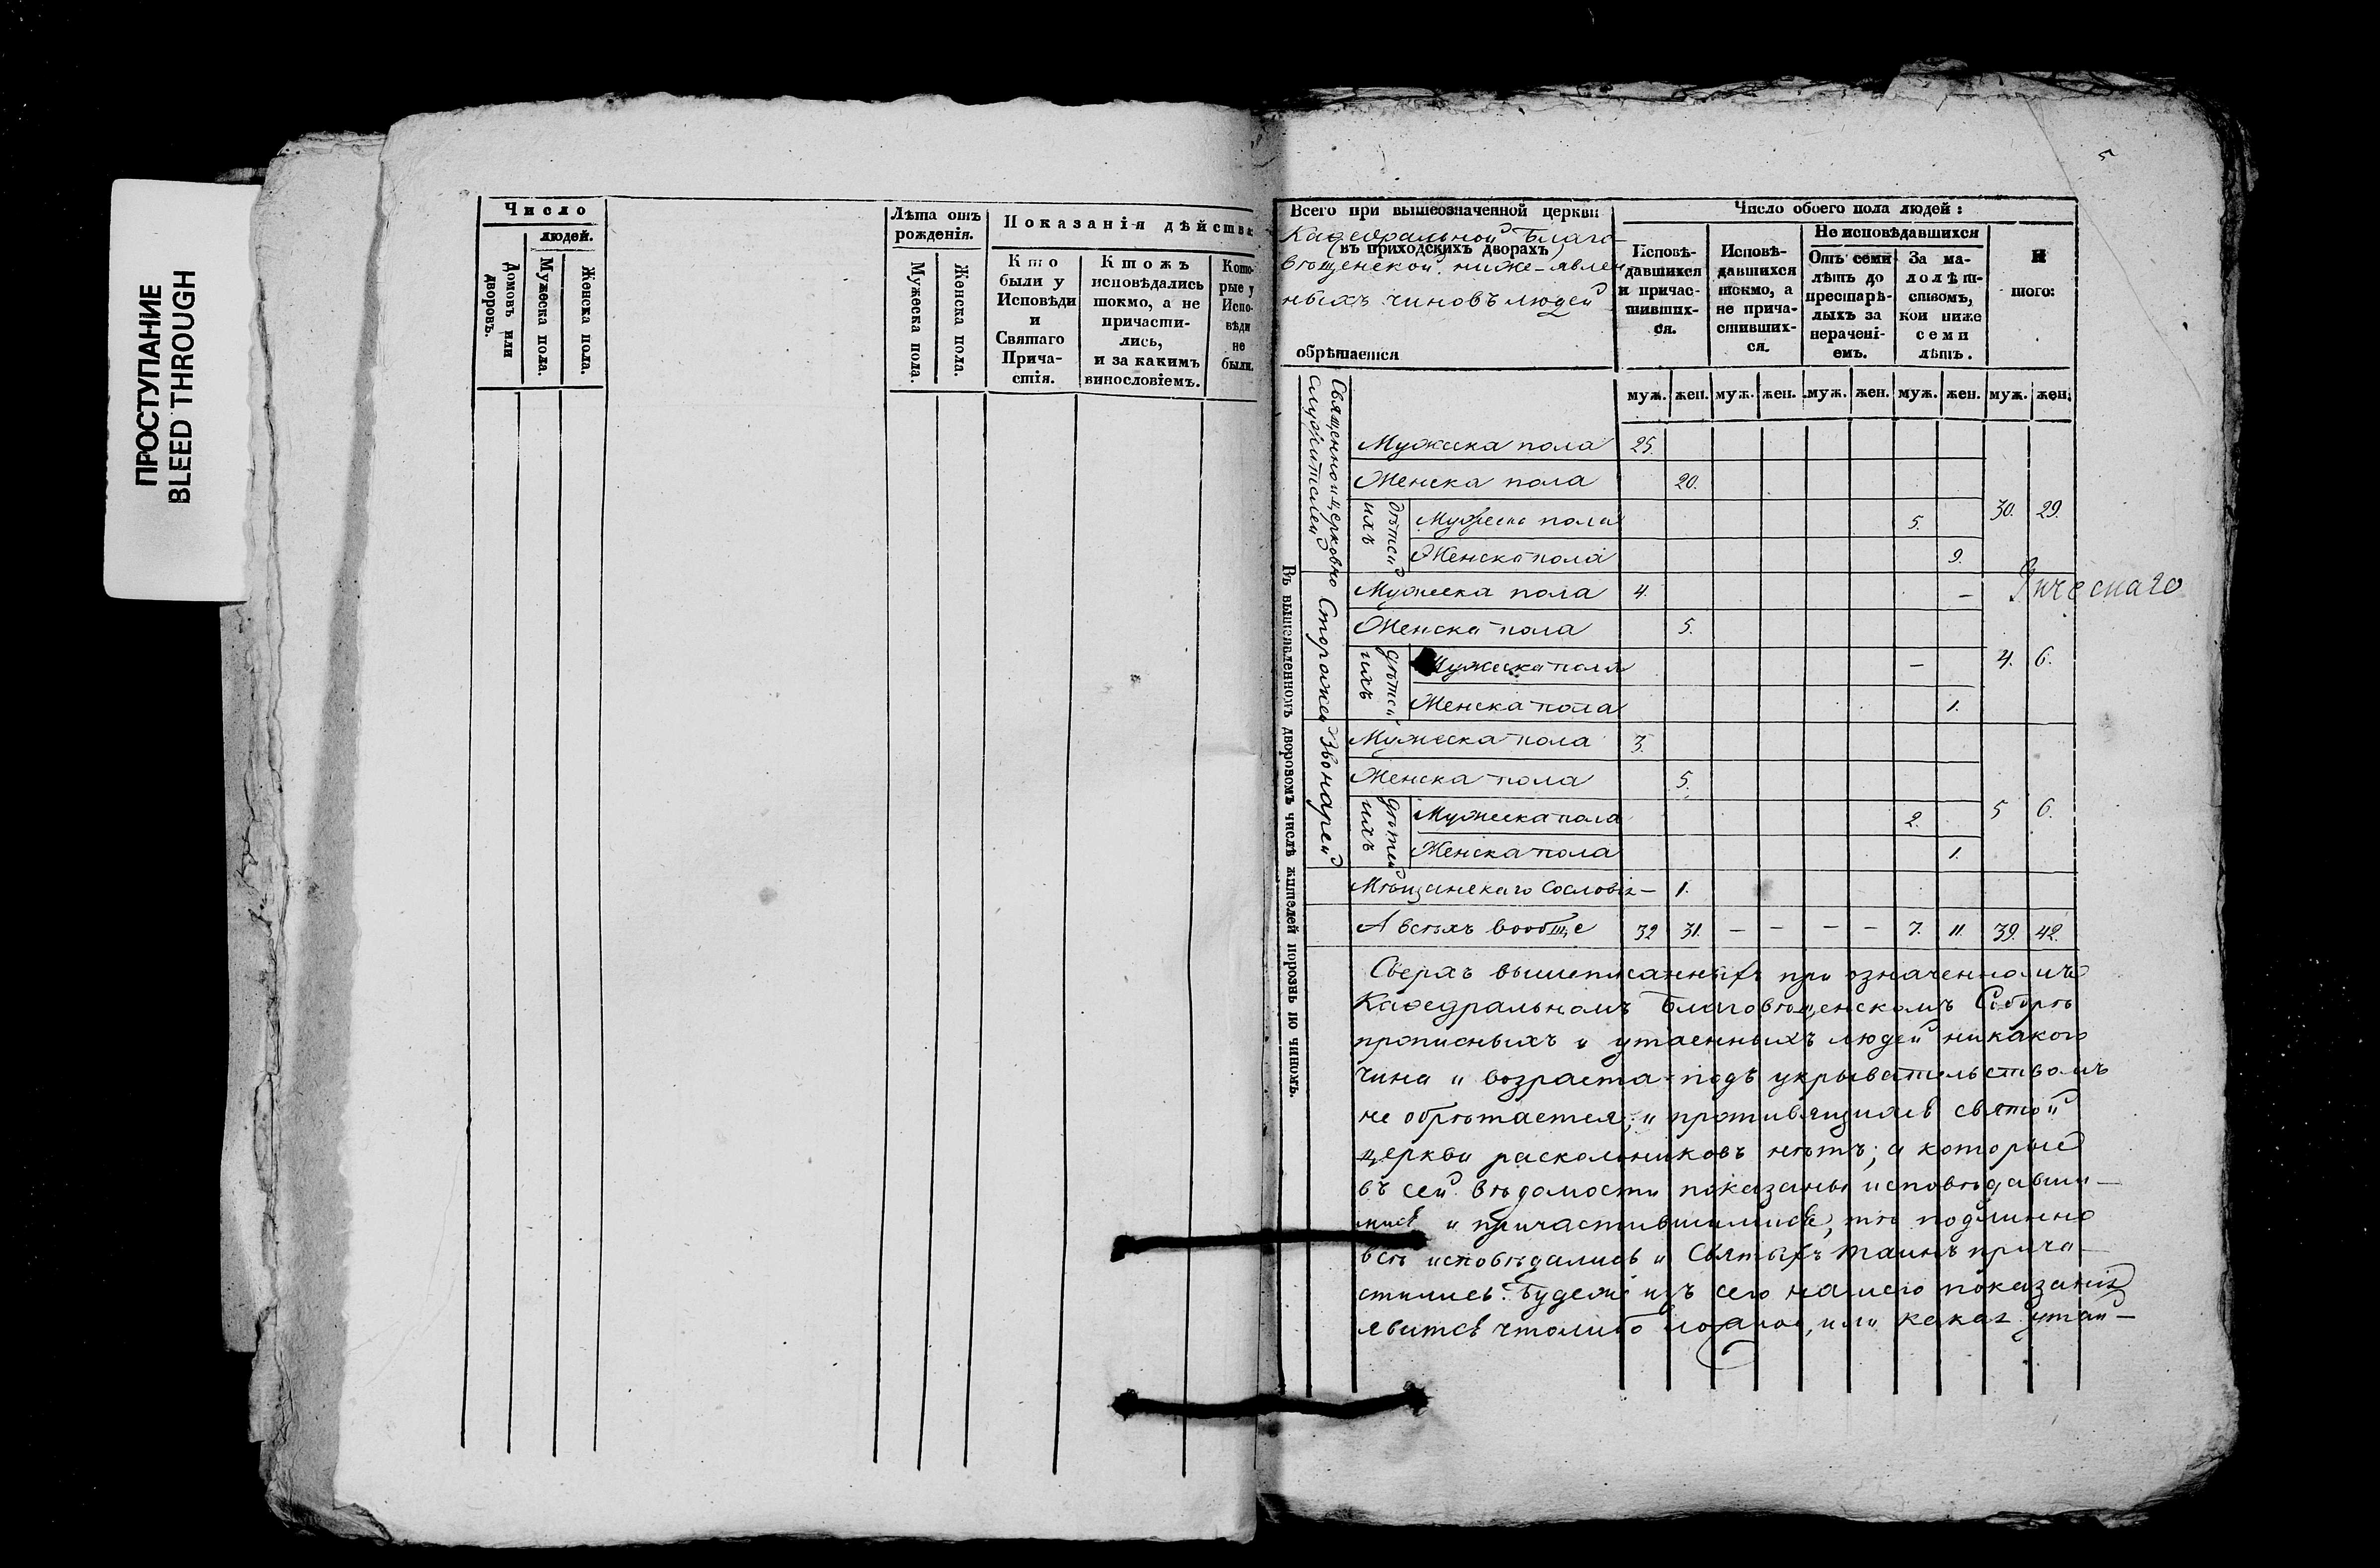 ПРОСТУПАНИЕ
BLEED THROUGH
Число
людей.
Домовъ или дворовъ.
Мужеска пола.
Женска пола.
Лѣта отъ рожденія.
Мужеска пола.
Женска пола.
Показанія дѣйства
Кто были у Исповѣди и Святаго Прича-
стія.
Ктожъ исповѣдались токмо, а не причасти-
лись, и за какимъ винословіемъ.
Кото-
рые у Испо-
вѣди не были.
5
Всего при вышеозначенной церкви
Каѳедральной Благо-
(въ приходскихъ дворахъ)
вѣщенской, ниже-явлен
ныхъ чиновъ людей
обрѣтается
Число обоего пола людей:
Исповѣ-
давшихся и причас-
тивших-
ся.
Исповѣ-
давшихся токмо, а не прича-
стивших-
ся.
Не исповѣдавшихся
Отъ семи лѣтъ до престарѣ-
лыхъ за нерачені-
емъ.
За ма-
лолѣт-
ствомъ, кои ниже семи лѣтъ.
И
того:
муж. жен. муж. жен. муж. жен. муж. жен. муж. жен.
Въ вышеявленномъ дворовомъ числѣ жителей порознь по чиномъ.
Священно и церковно
служителей
Мужеска пола 25.
Женска пола 20.
дѣтей ихъ
Мужеска пола 5. 30. 29.
Женска пола 9.
Сторожей
Мужеска пола 4. —
Женска пола 5.
дѣтей ихъ
Мужеска пола — 4. 6.
Женска пола 1.
Звонарей
Мужеска пола 3.
Женска пола 5.
дѣтей ихъ
Мужеска пола 2. 5 6.
Женска пола 1.
Мѣщанскаго Сословія — 1.
А всѣхъ вообще 32 31. — — — — 7. 11. 39. 42.
Сверхъ вышеписанныхъ при означенномъ
Каѳедральномъ Благовѣщенскомъ Соборѣ
прописныхъ и утаенныхъ людей никакого
чина и возраста подъ укрывательствомъ
не обрѣтается; и противящихся святой
церкви раскольниковъ нѣтъ; а которые
въ сей вѣдомости показаны исповѣдавши-
мися и причастившимися, тѣ подлинно
всѣ исповѣдались и Святыхъ таинъ прича-
стились. Будели изъ сего нашего показанія
явится чтолибо ложное, или какая утай-